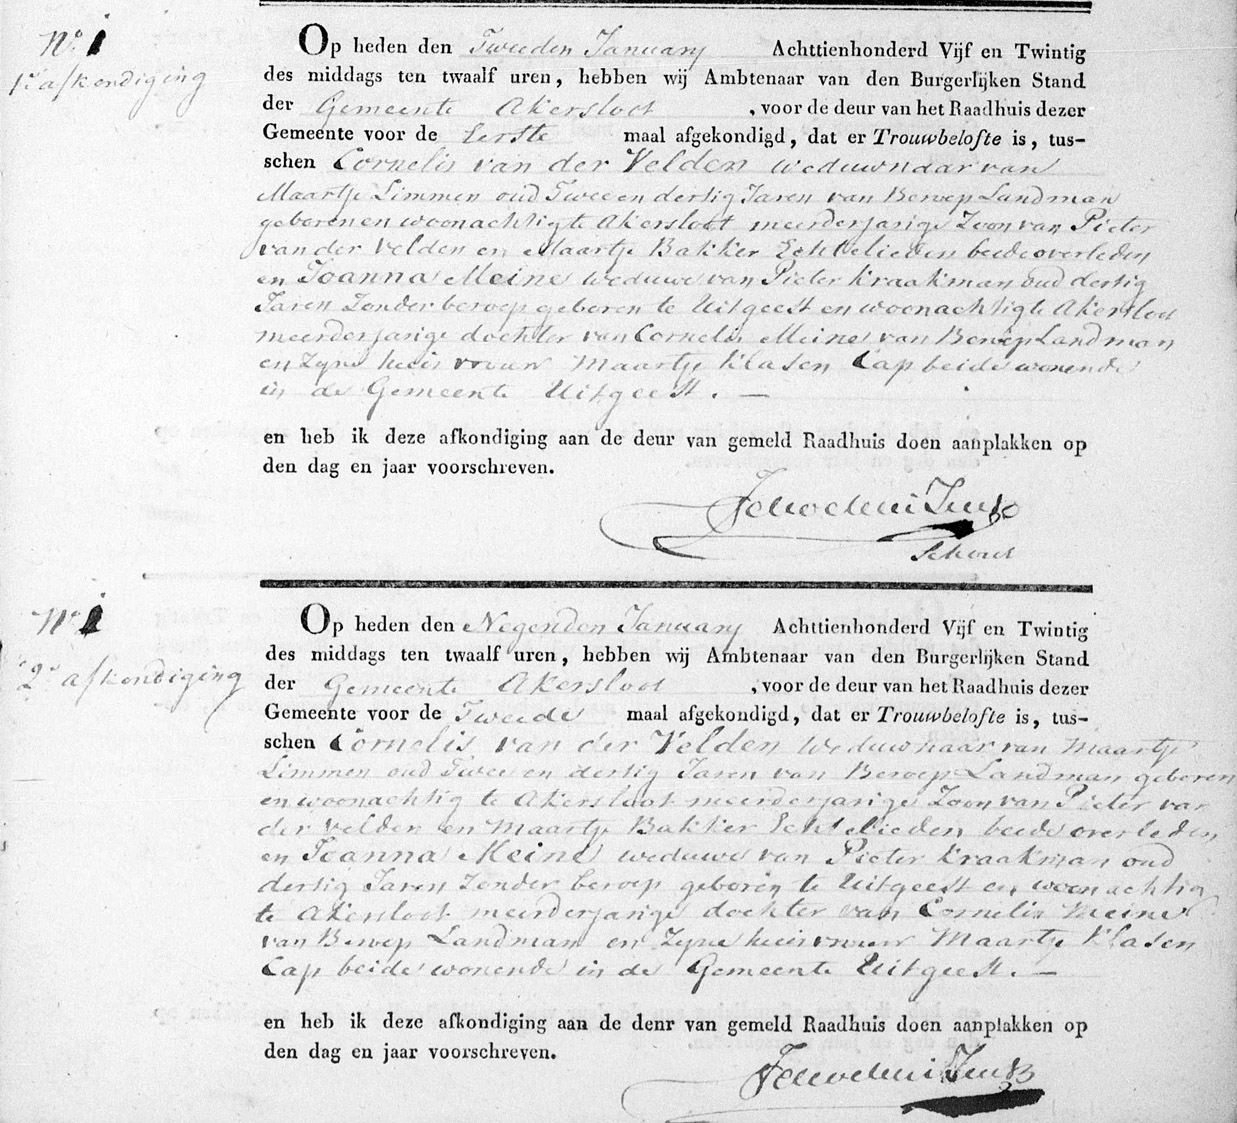 N.º 1
1e afkondiging
Op heden den Tweeden January Achttienhonderd Vijf en Twintig
des middags ten twaalf uren, hebben wij Ambtenaar van den Burgerlijken Stand
der Gemeente Akersloot, voor de deur van het Raadhuis dezer
Gemeente voor de Eerste maal afgekondigd, dat er Trouwbelofte is, tus-
schen Cornelis van der Velden weduwnaar van
Maartje Limmen oud Twee en dertig Jaren van Beroep Landman
geboren en woonachtig te Akersloot meerderjarige Zoon van Pieter
van der Velden en Maartje Bakker Echtelieden beide overleden
en Joanna Meine weduwe van Pieter Kraakman oud dertig
Jaren Zonder beroep geboren te Uitgeest en woonachtig te Akersloot
meerderjarige dochter van Cornelis Meine van Beroep Landman
en Zyne huisvrouw Maartje Klasen Cap beide wonende
in de Gemeente Uitgeest. —
en heb ik deze afkondiging aan de deur van gemeld Raadhuis doen aanplakken op
den dag en jaar voorschreven.
Schout
N.º 1
2e afkondiging
Op heden den Negenden January Achttienhonderd Vijf en Twintig
des middags ten twaalf uren, hebben wij Ambtenaar van den Burgerlijken Stand
der Gemeente Akersloot, voor de deur van het Raadhuis dezer
Gemeente voor de Tweede maal afgekondigd, dat er Trouwbelofte is, tus-
schen Cornelis van der Velden weduwnaar van Maartje
Limmen oud Twee en dertig Jaren van Beroep Landman geboren
en woonachtig te Akersloot meerderjarige Zoon van Pieter van
der Velden en Maartje Bakker Echtelieden beide overleden
en Joanna Meine weduwe van Pieter Kraakman oud
dertig Jaren Zonder beroep geboren te Uitgeest en woonachtig
te Akersloot meerderjarige dochter van Cornelis Meine
van Beroep Landman en Zyne huisvrouw Maartje Klasen
Cap beide wonende in de Gemeente Uitgeest. —
en heb ik deze afkondiging aan de denr van gemeld Raadhuis doen aanplakken op
den dag en jaar voorschreven.